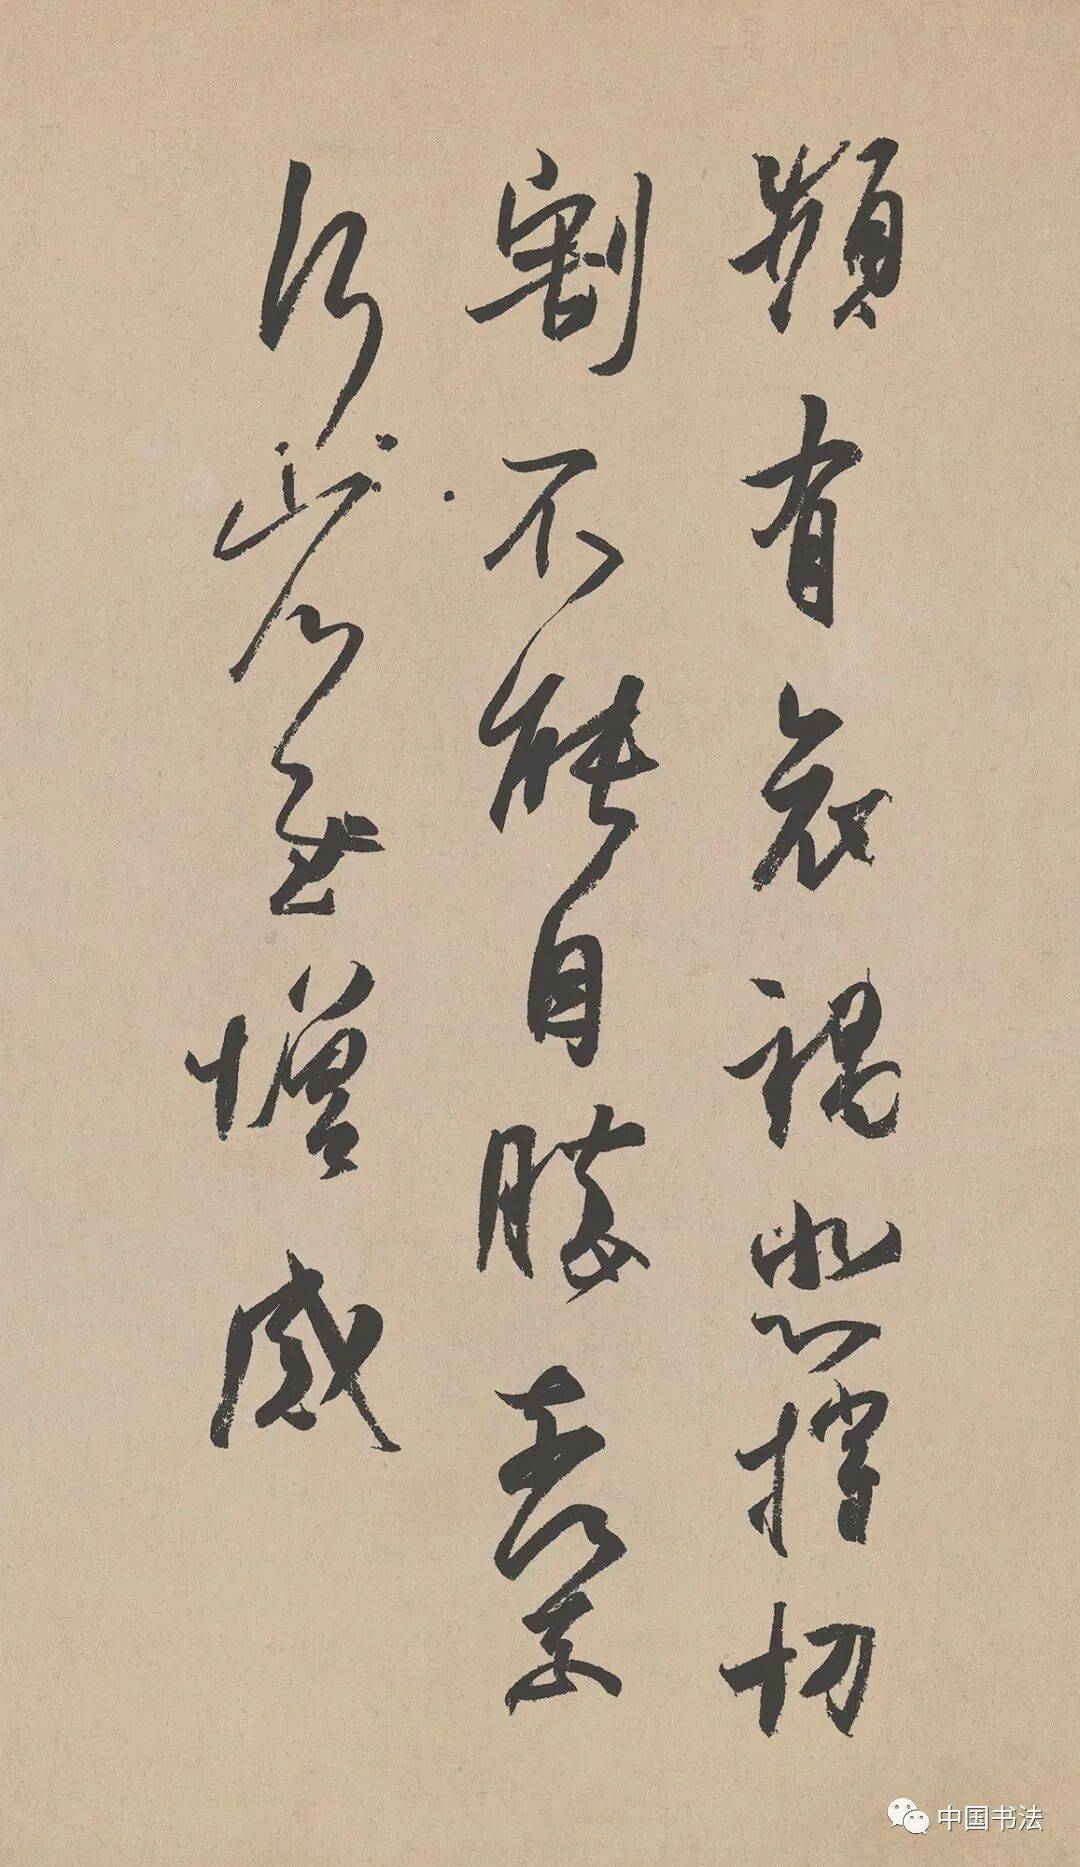 頻有哀禍悲摧切
割不能自勝奈何奈
何省慰增感
中国书法